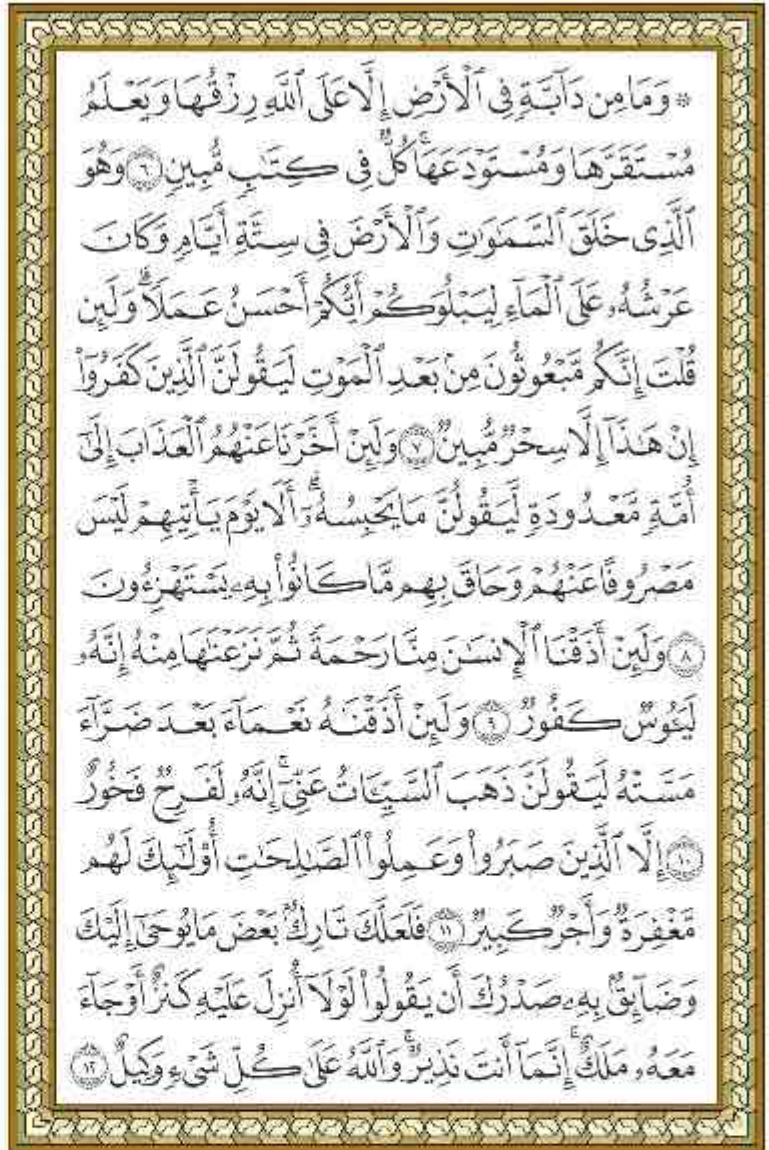 ۞ وَمَا مِن دَآبَّةٍ فِى ٱلْأَرْضِ إِلَّا عَلَى ٱللَّهِ رِزْقُهَا وَيَعْلَمُ
مُسْتَقَرَّهَا وَمُسْتَوْدَعَهَا ۚ كُلٌّ فِى كِتَٰبٍ مُّبِينٍ ٦ وَهُوَ
ٱلَّذِى خَلَقَ ٱلسَّمَٰوَٰتِ وَٱلْأَرْضَ فِى سِتَّةِ أَيَّامٍ وَكَانَ
عَرْشُهُۥ عَلَى ٱلْمَآءِ لِيَبْلُوَكُمْ أَيُّكُمْ أَحْسَنُ عَمَلًا ۗ وَلَئِن
قُلْتَ إِنَّكُم مَّبْعُوثُونَ مِنۢ بَعْدِ ٱلْمَوْتِ لَيَقُولَنَّ ٱلَّذِينَ كَفَرُوٓا۟
إِنْ هَٰذَآ إِلَّا سِحْرٌ مُّبِينٌ ٧ وَلَئِنْ أَخَّرْنَا عَنْهُمُ ٱلْعَذَابَ إِلَىٰٓ
أُمَّةٍ مَّعْدُودَةٍ لَّيَقُولُنَّ مَا يَحْبِسُهُۥٓ ۗ أَلَا يَوْمَ يَأْتِيهِمْ لَيْسَ
مَصْرُوفًا عَنْهُمْ وَحَاقَ بِهِم مَّا كَانُوا۟ بِهِۦ يَسْتَهْزِءُونَ
٨ وَلَئِنْ أَذَقْنَا ٱلْإِنسَٰنَ مِنَّا رَحْمَةً ثُمَّ نَزَعْنَٰهَا مِنْهُ إِنَّهُۥ
لَيَـُٔوسٌ كَفُورٌ ٩ وَلَئِنْ أَذَقْنَٰهُ نَعْمَآءَ بَعْدَ ضَرَّآءَ
مَسَّتْهُ لَيَقُولَنَّ ذَهَبَ ٱلسَّيِّـَٔاتُ عَنِّىٓ ۚ إِنَّهُۥ لَفَرِحٌ فَخُورٌ
١٠ إِلَّا ٱلَّذِينَ صَبَرُوا۟ وَعَمِلُوا۟ ٱلصَّٰلِحَٰتِ أُو۟لَٰٓئِكَ لَهُم
مَّغْفِرَةٌ وَأَجْرٌ كَبِيرٌ ١١ فَلَعَلَّكَ تَارِكٌۢ بَعْضَ مَا يُوحَىٰٓ إِلَيْكَ
وَضَآئِقٌۢ بِهِۦ صَدْرُكَ أَن يَقُولُوا۟ لَوْلَآ أُنزِلَ عَلَيْهِ كَنزٌ أَوْ جَآءَ
مَعَهُۥ مَلَكٌ ۚ إِنَّمَآ أَنتَ نَذِيرٌ ۚ وَٱللَّهُ عَلَىٰ كُلِّ شَىْءٍ وَكِيلٌ ١٢